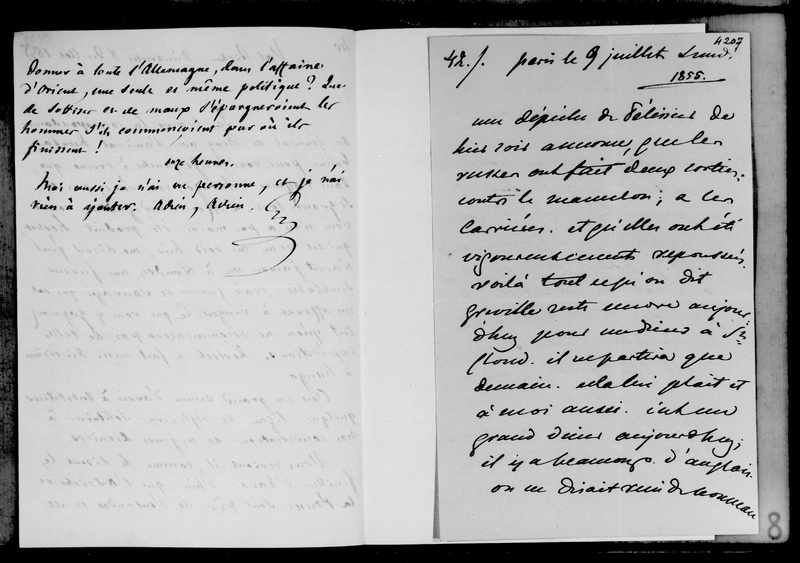 donner à toute l'Allemagne, dans l'affaire
d'Orient, une seule et même politique ? Que
de sottises et de maux s'épargneroient les
hommes s'ils commençoient par où ils
finissent !
onze heures.
Moi aussi je n'ai vu personne, et je n'ai
rien à ajouter. Adieu, Adieu.
4207
42./. paris le 9 juillet Lundi
1855.
une dépêche de Pélissier de
hier soir annonce, que les
russes ont fait deux sorties
contre le mamelon, & les
Carrières. et qu'elles ont été
vigoureusement repoussées.
voilà tout ce qu'on dit
greville reste encore aujour-
d'huy pour un diner à St
Cloud. il ne partira que
demain. cela lui plait et
à moi aussi. c'est un
grand diner aujourd'huy;
il y a beaucoup d'anglais.
on ne disait rien de nouveau
8